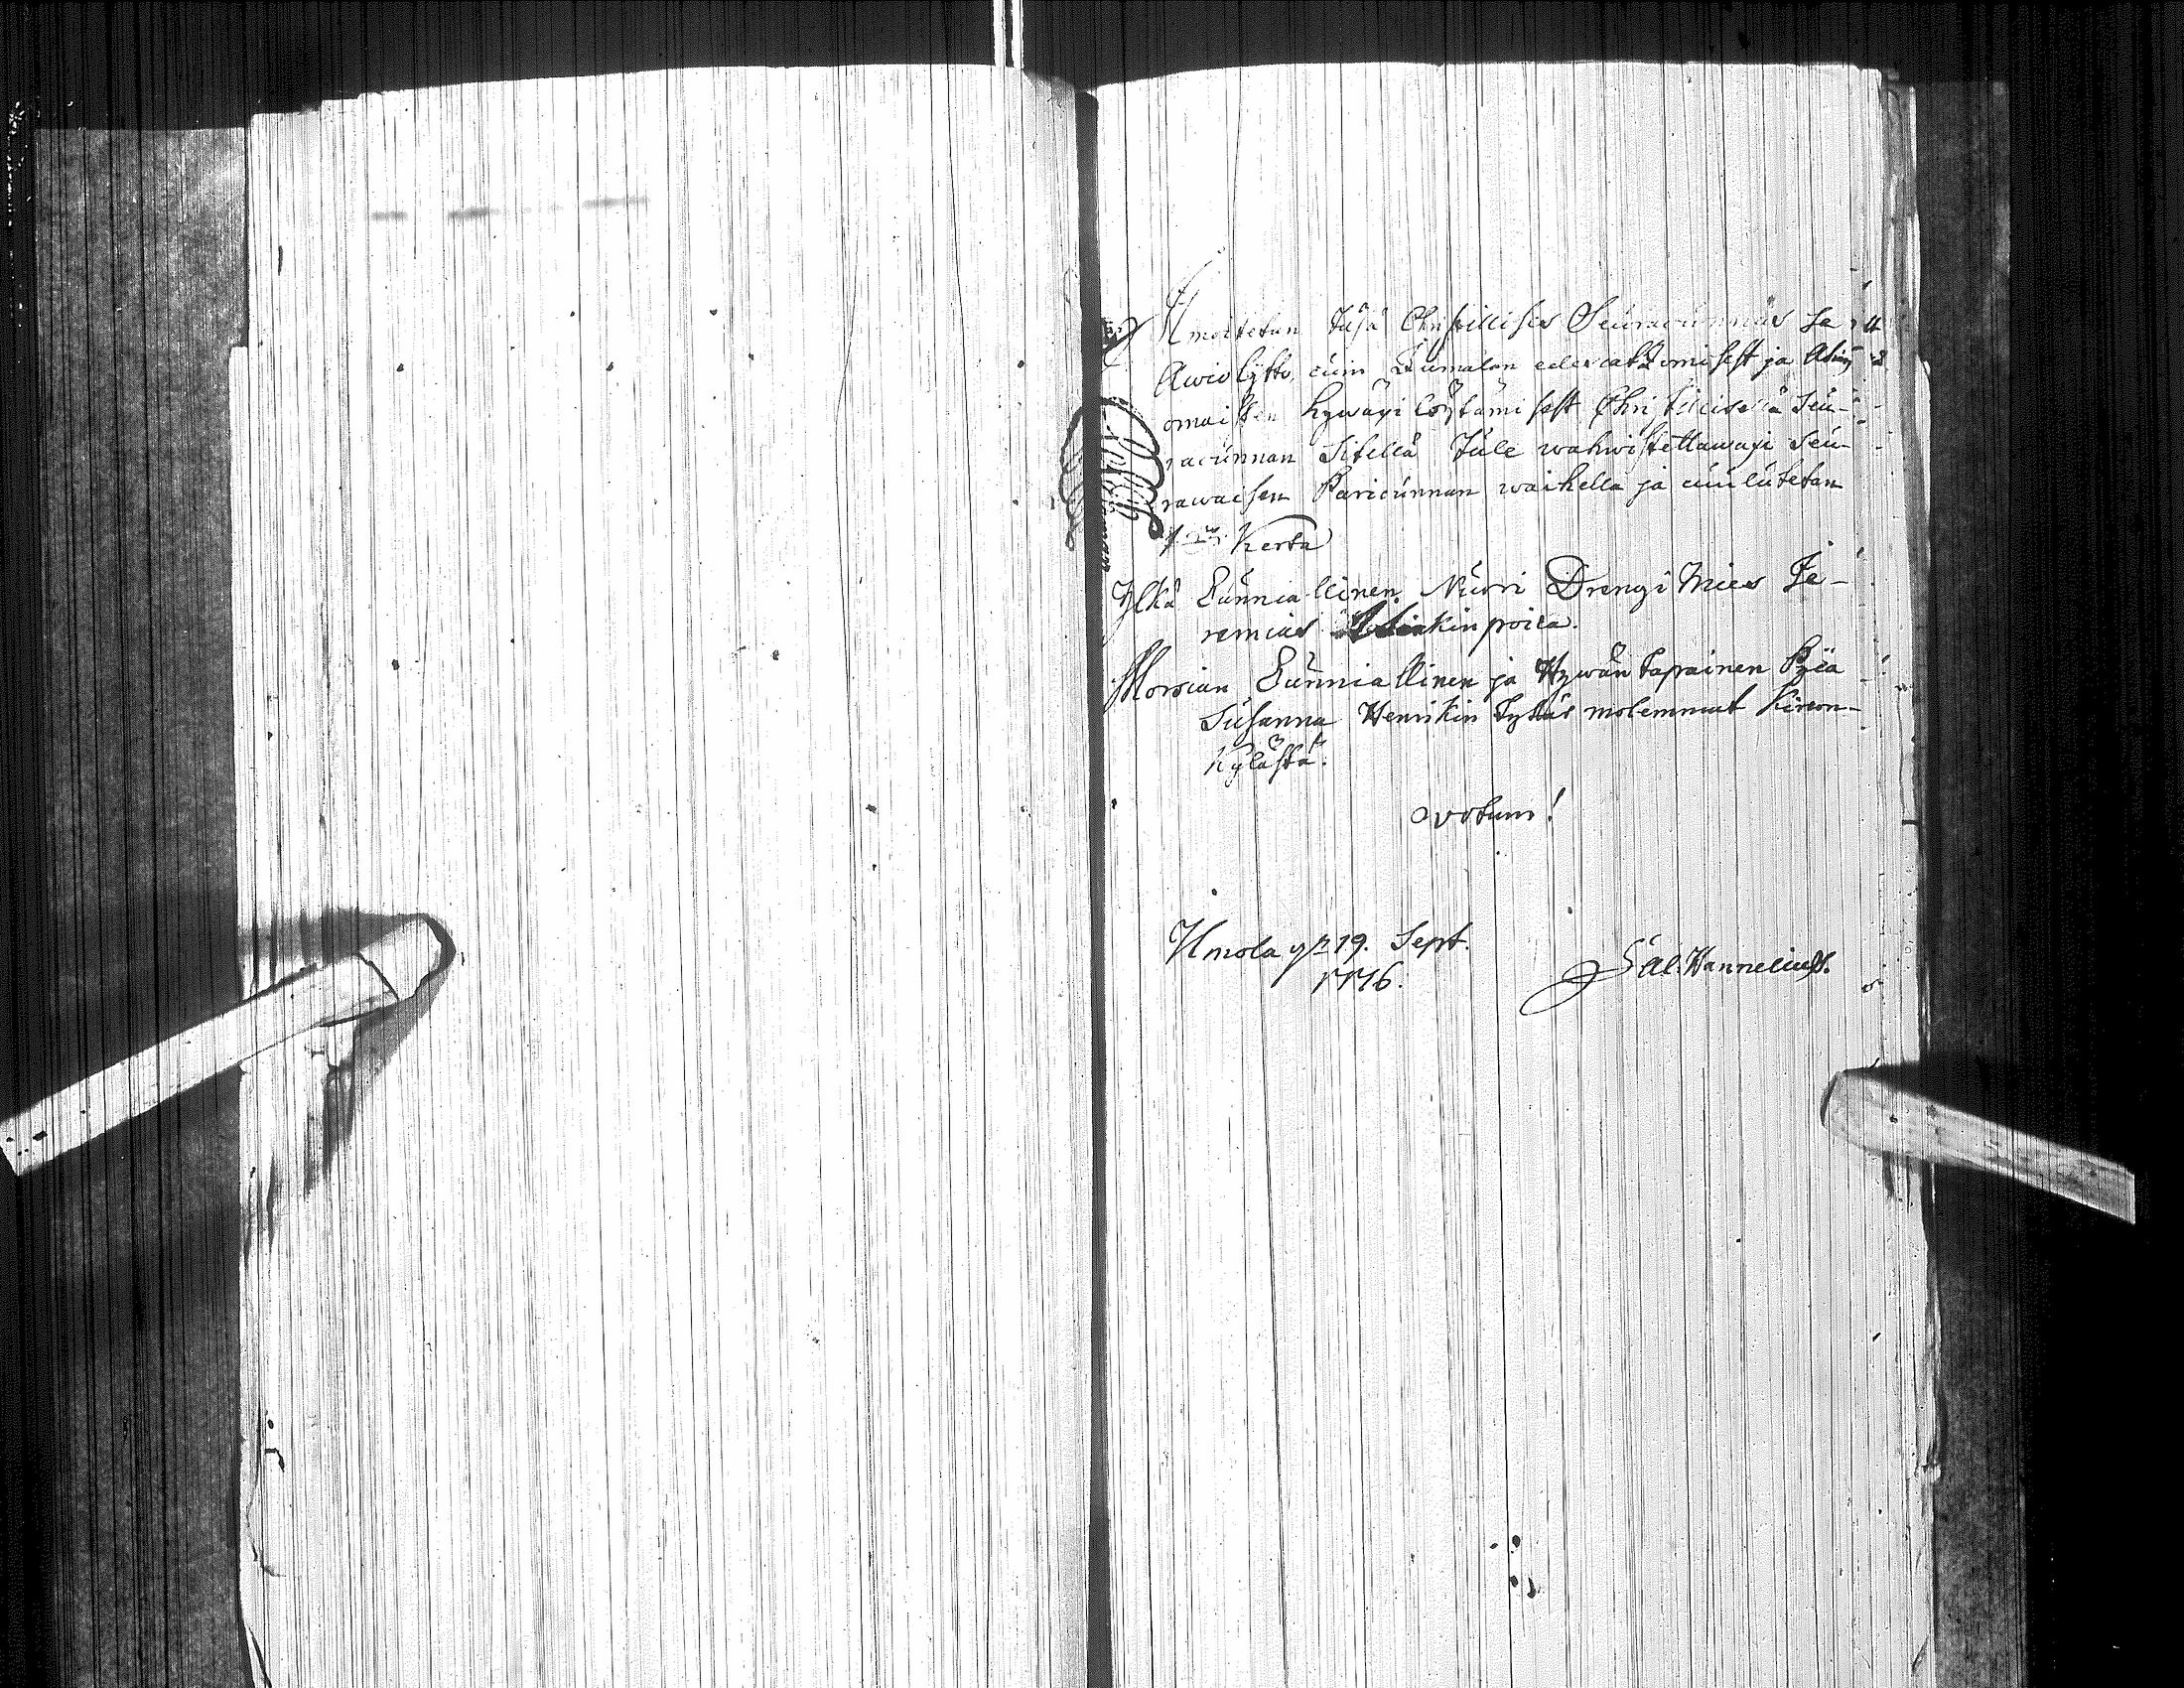 Ilmoitetan täsä Christillises Seuracunnas se
Awio lijtto, cuin Jumalan edescatzomisest ja
omaisten hywäxi löytämisest Christillisellä Seu-
racunnan Sitellä tule wahwistettawaxi seu-
rawaisen Paricunnan waihella ja cuulutetan
Kerta
Ylkä Cunniallinen Nuori Drengi Mies Je-
remias poica.
Morsian Cunniallinen ja Hywän tapainen Pijca
Susanna Henrikin tytär molemmat Kircon-
Kylästä.
votum!
Ulmola 19. Sept.
1776.
Sal. Hannelius.